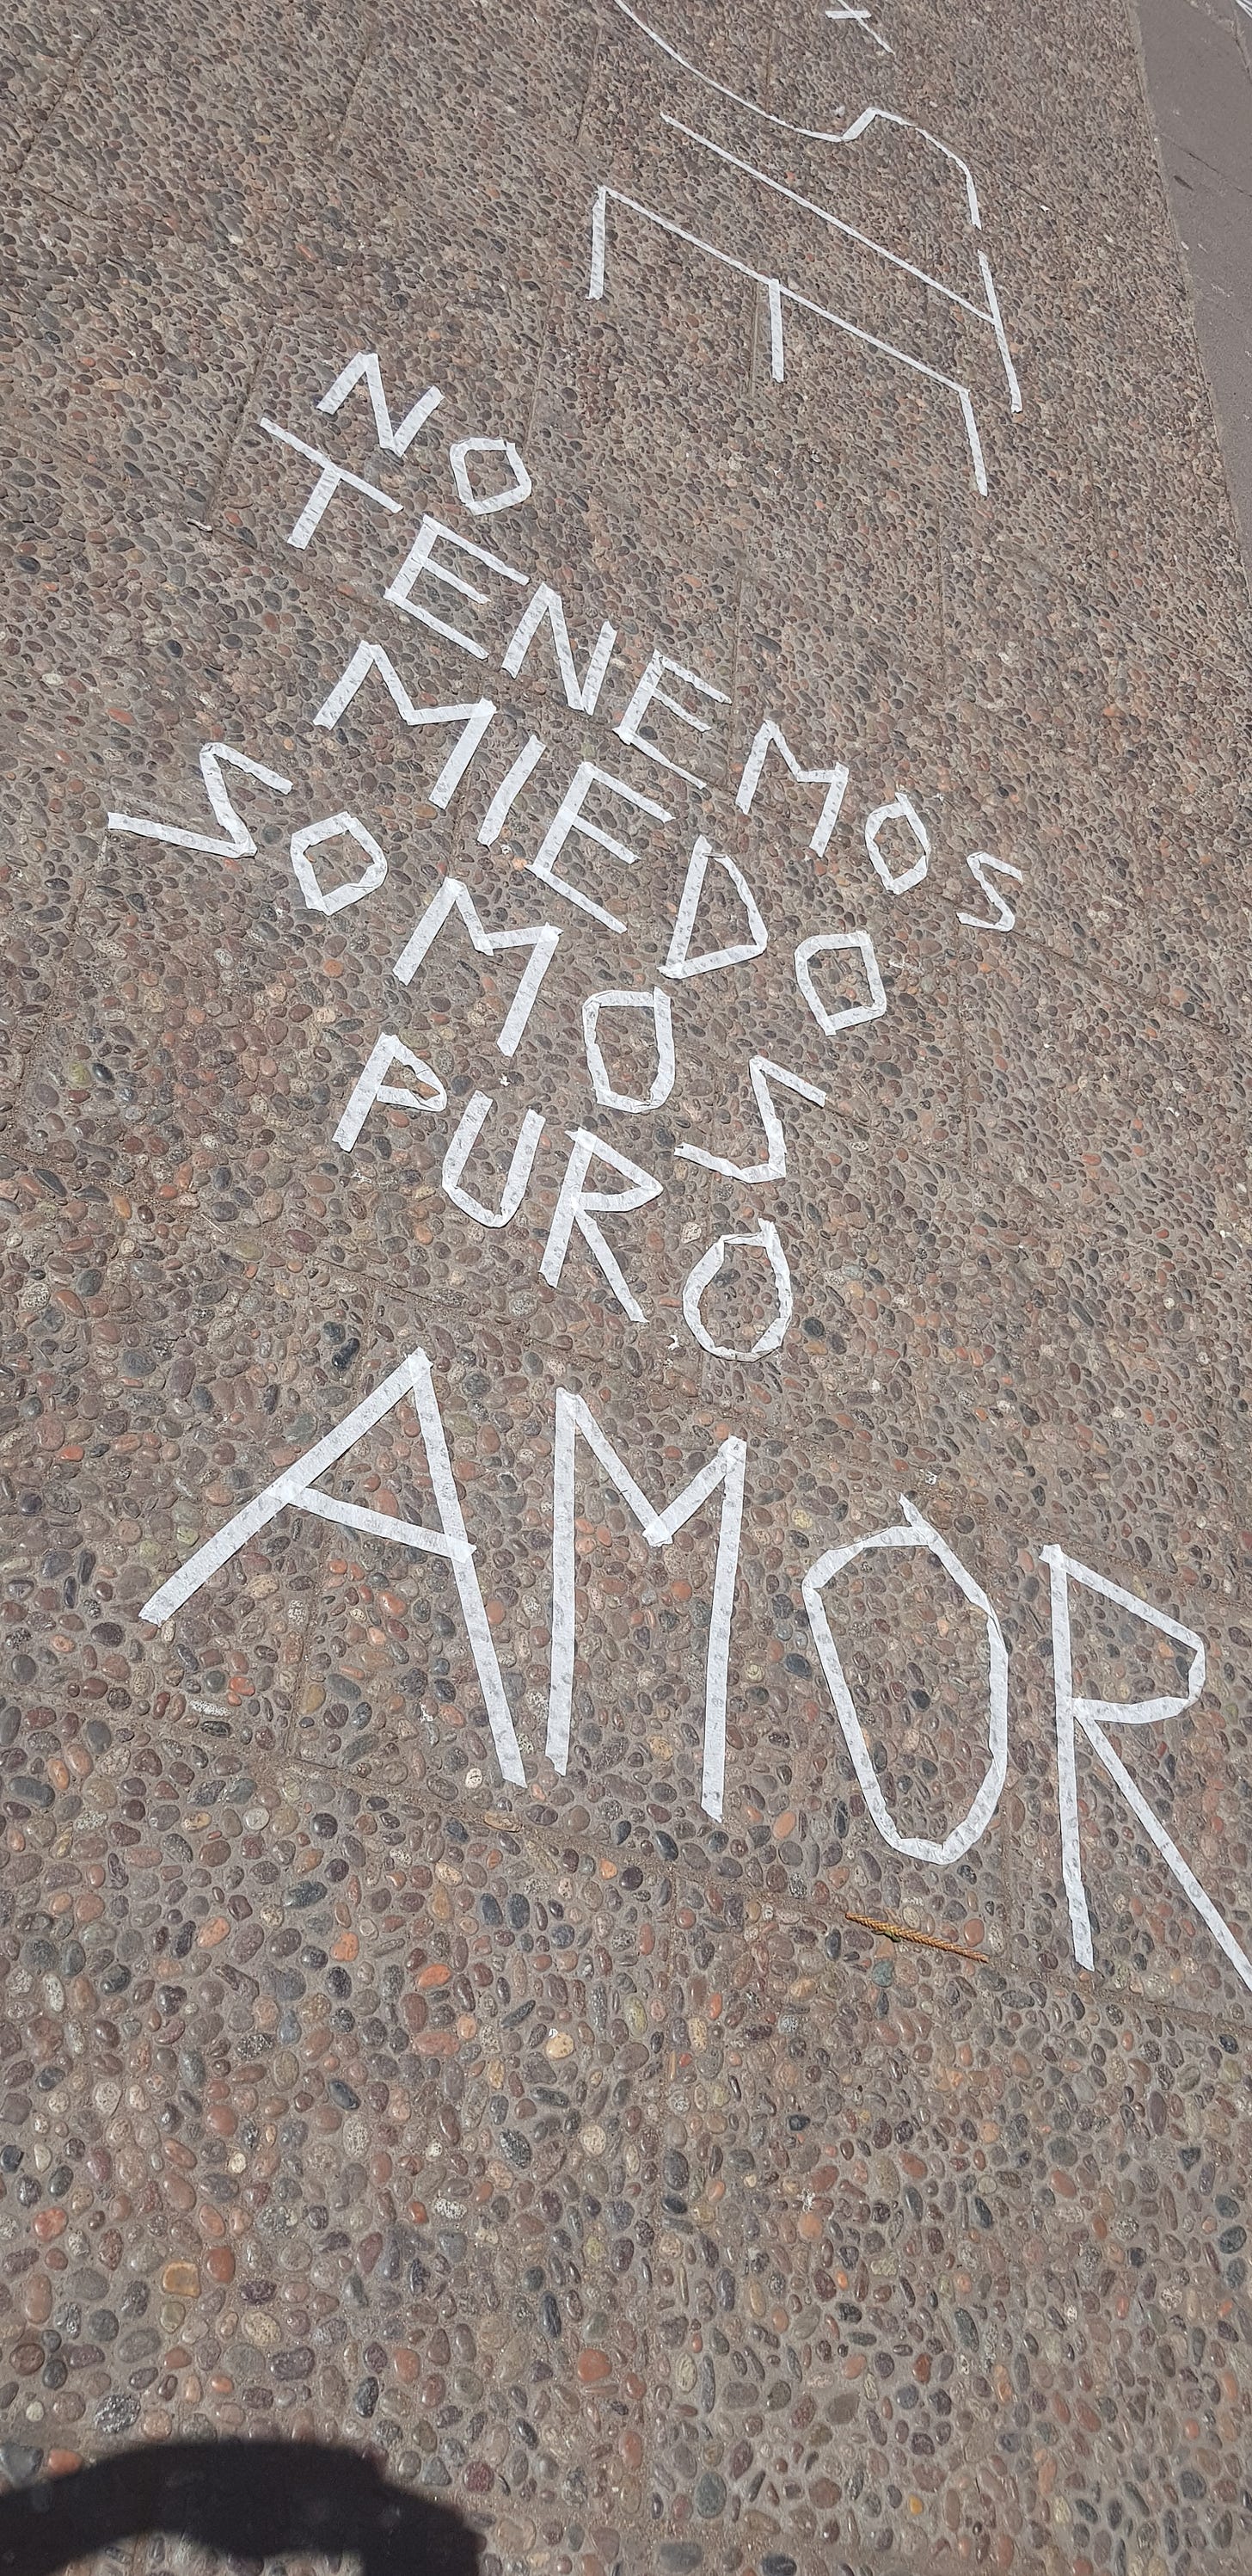 NO
TENEMOS
MIEDO
SOMOS
PURO
AMOR